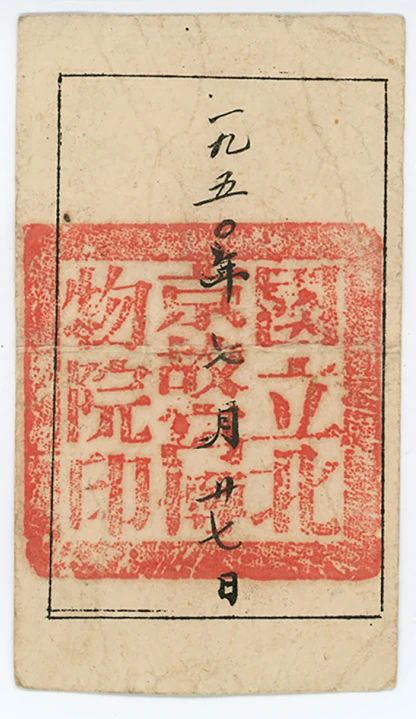 一九五〇年七月廿七日
國立北
京故宫博
物院印